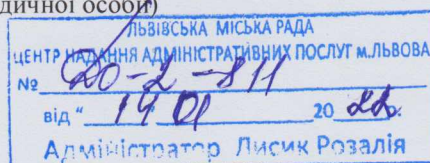 дичної особи)
ЛЬВІВСЬКА МІСЬКА РАДА
ЦЕНТР НАДАННЯ АДМІНІСТРАТИВНИХ ПОСЛУГ м.ЛЬВОВА
№ 20-2-811
від " 19 01 20 22.
Адміністратор Лисик Розалія